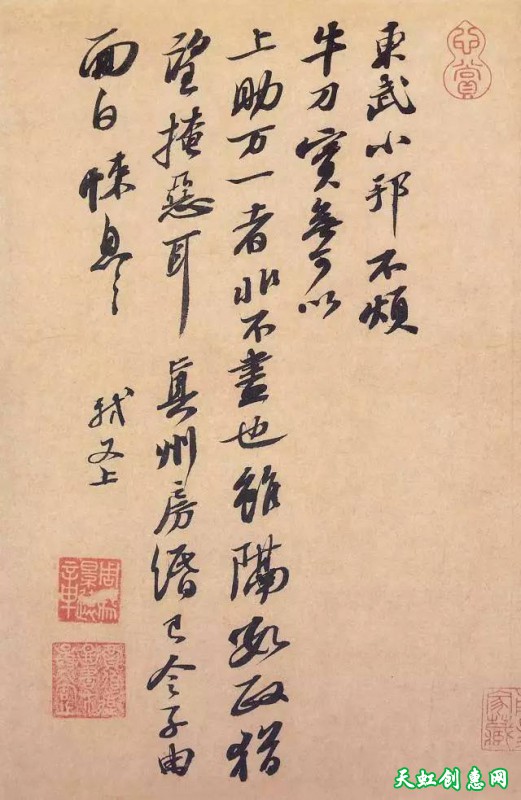 東武小邦不煩
牛刀實無可以
上助万一者非不盡也雖隔數政猶
望掩惡耳真州房緡已令子由
面白悚息〻
軾又上
家藏
天虹创惠网